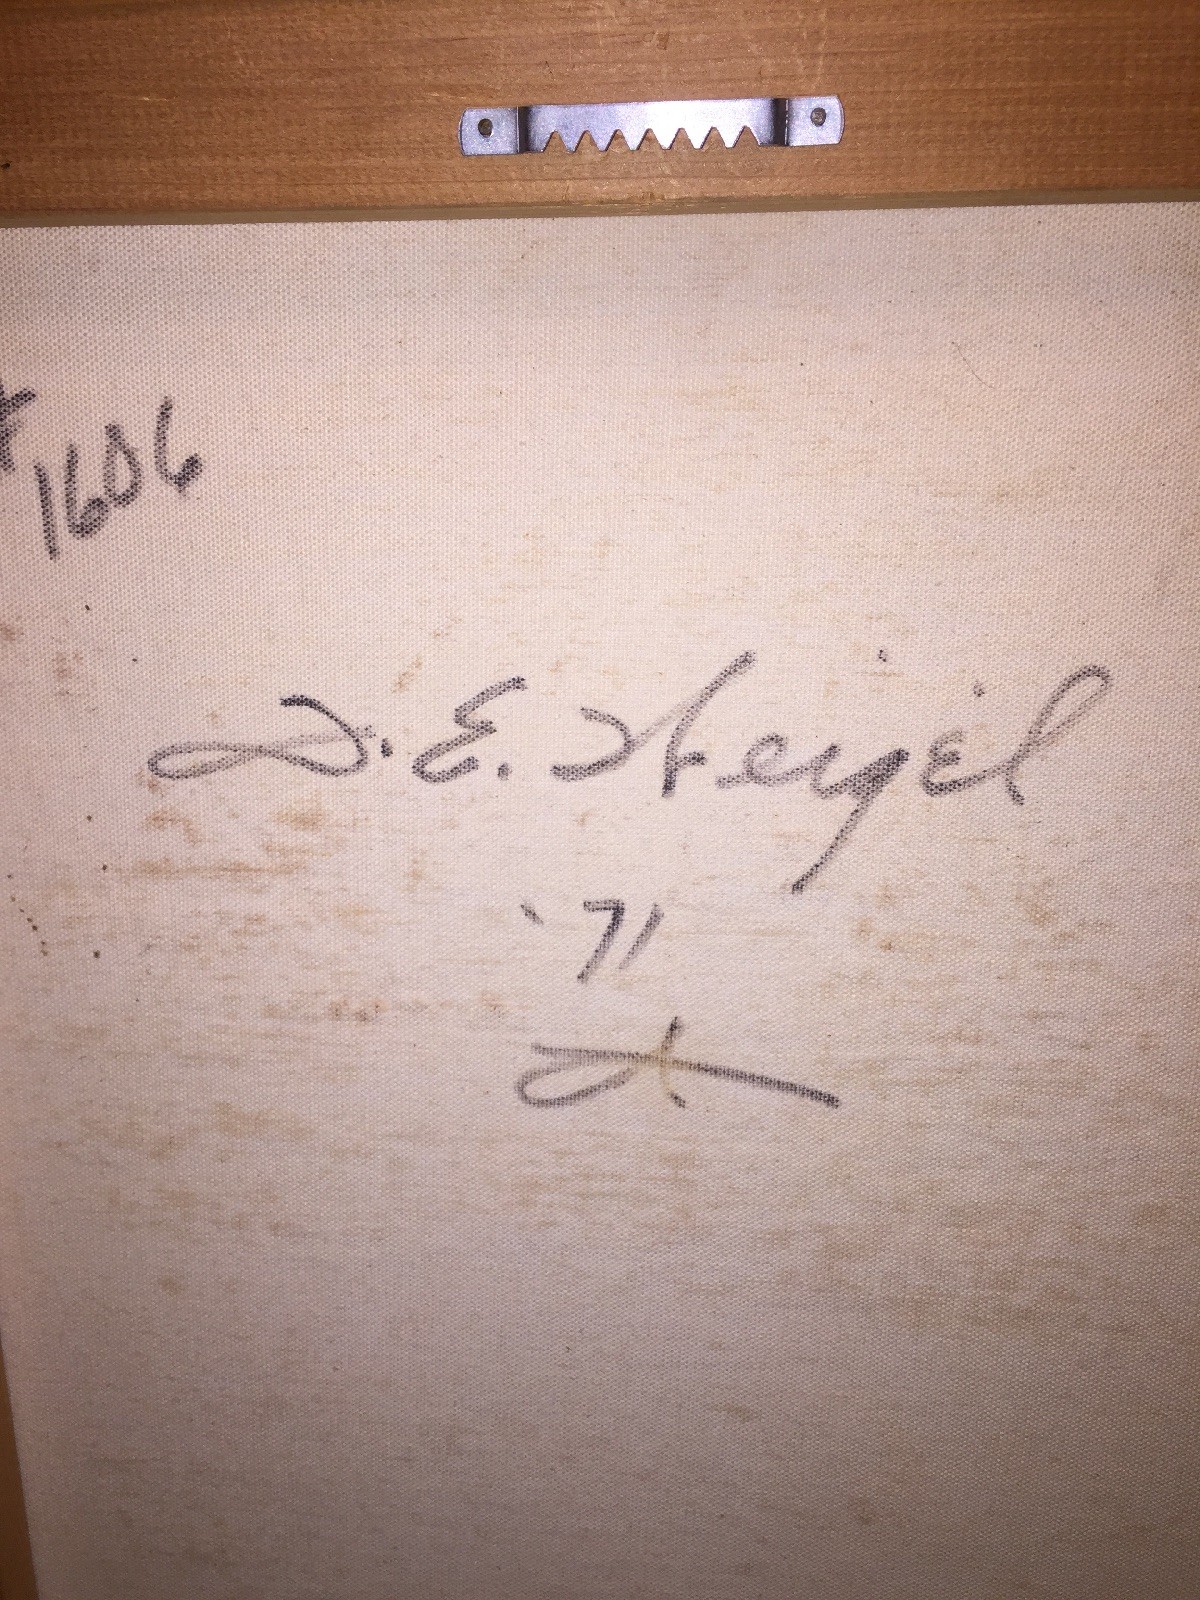 #
1606
D. E. Heigel
'71